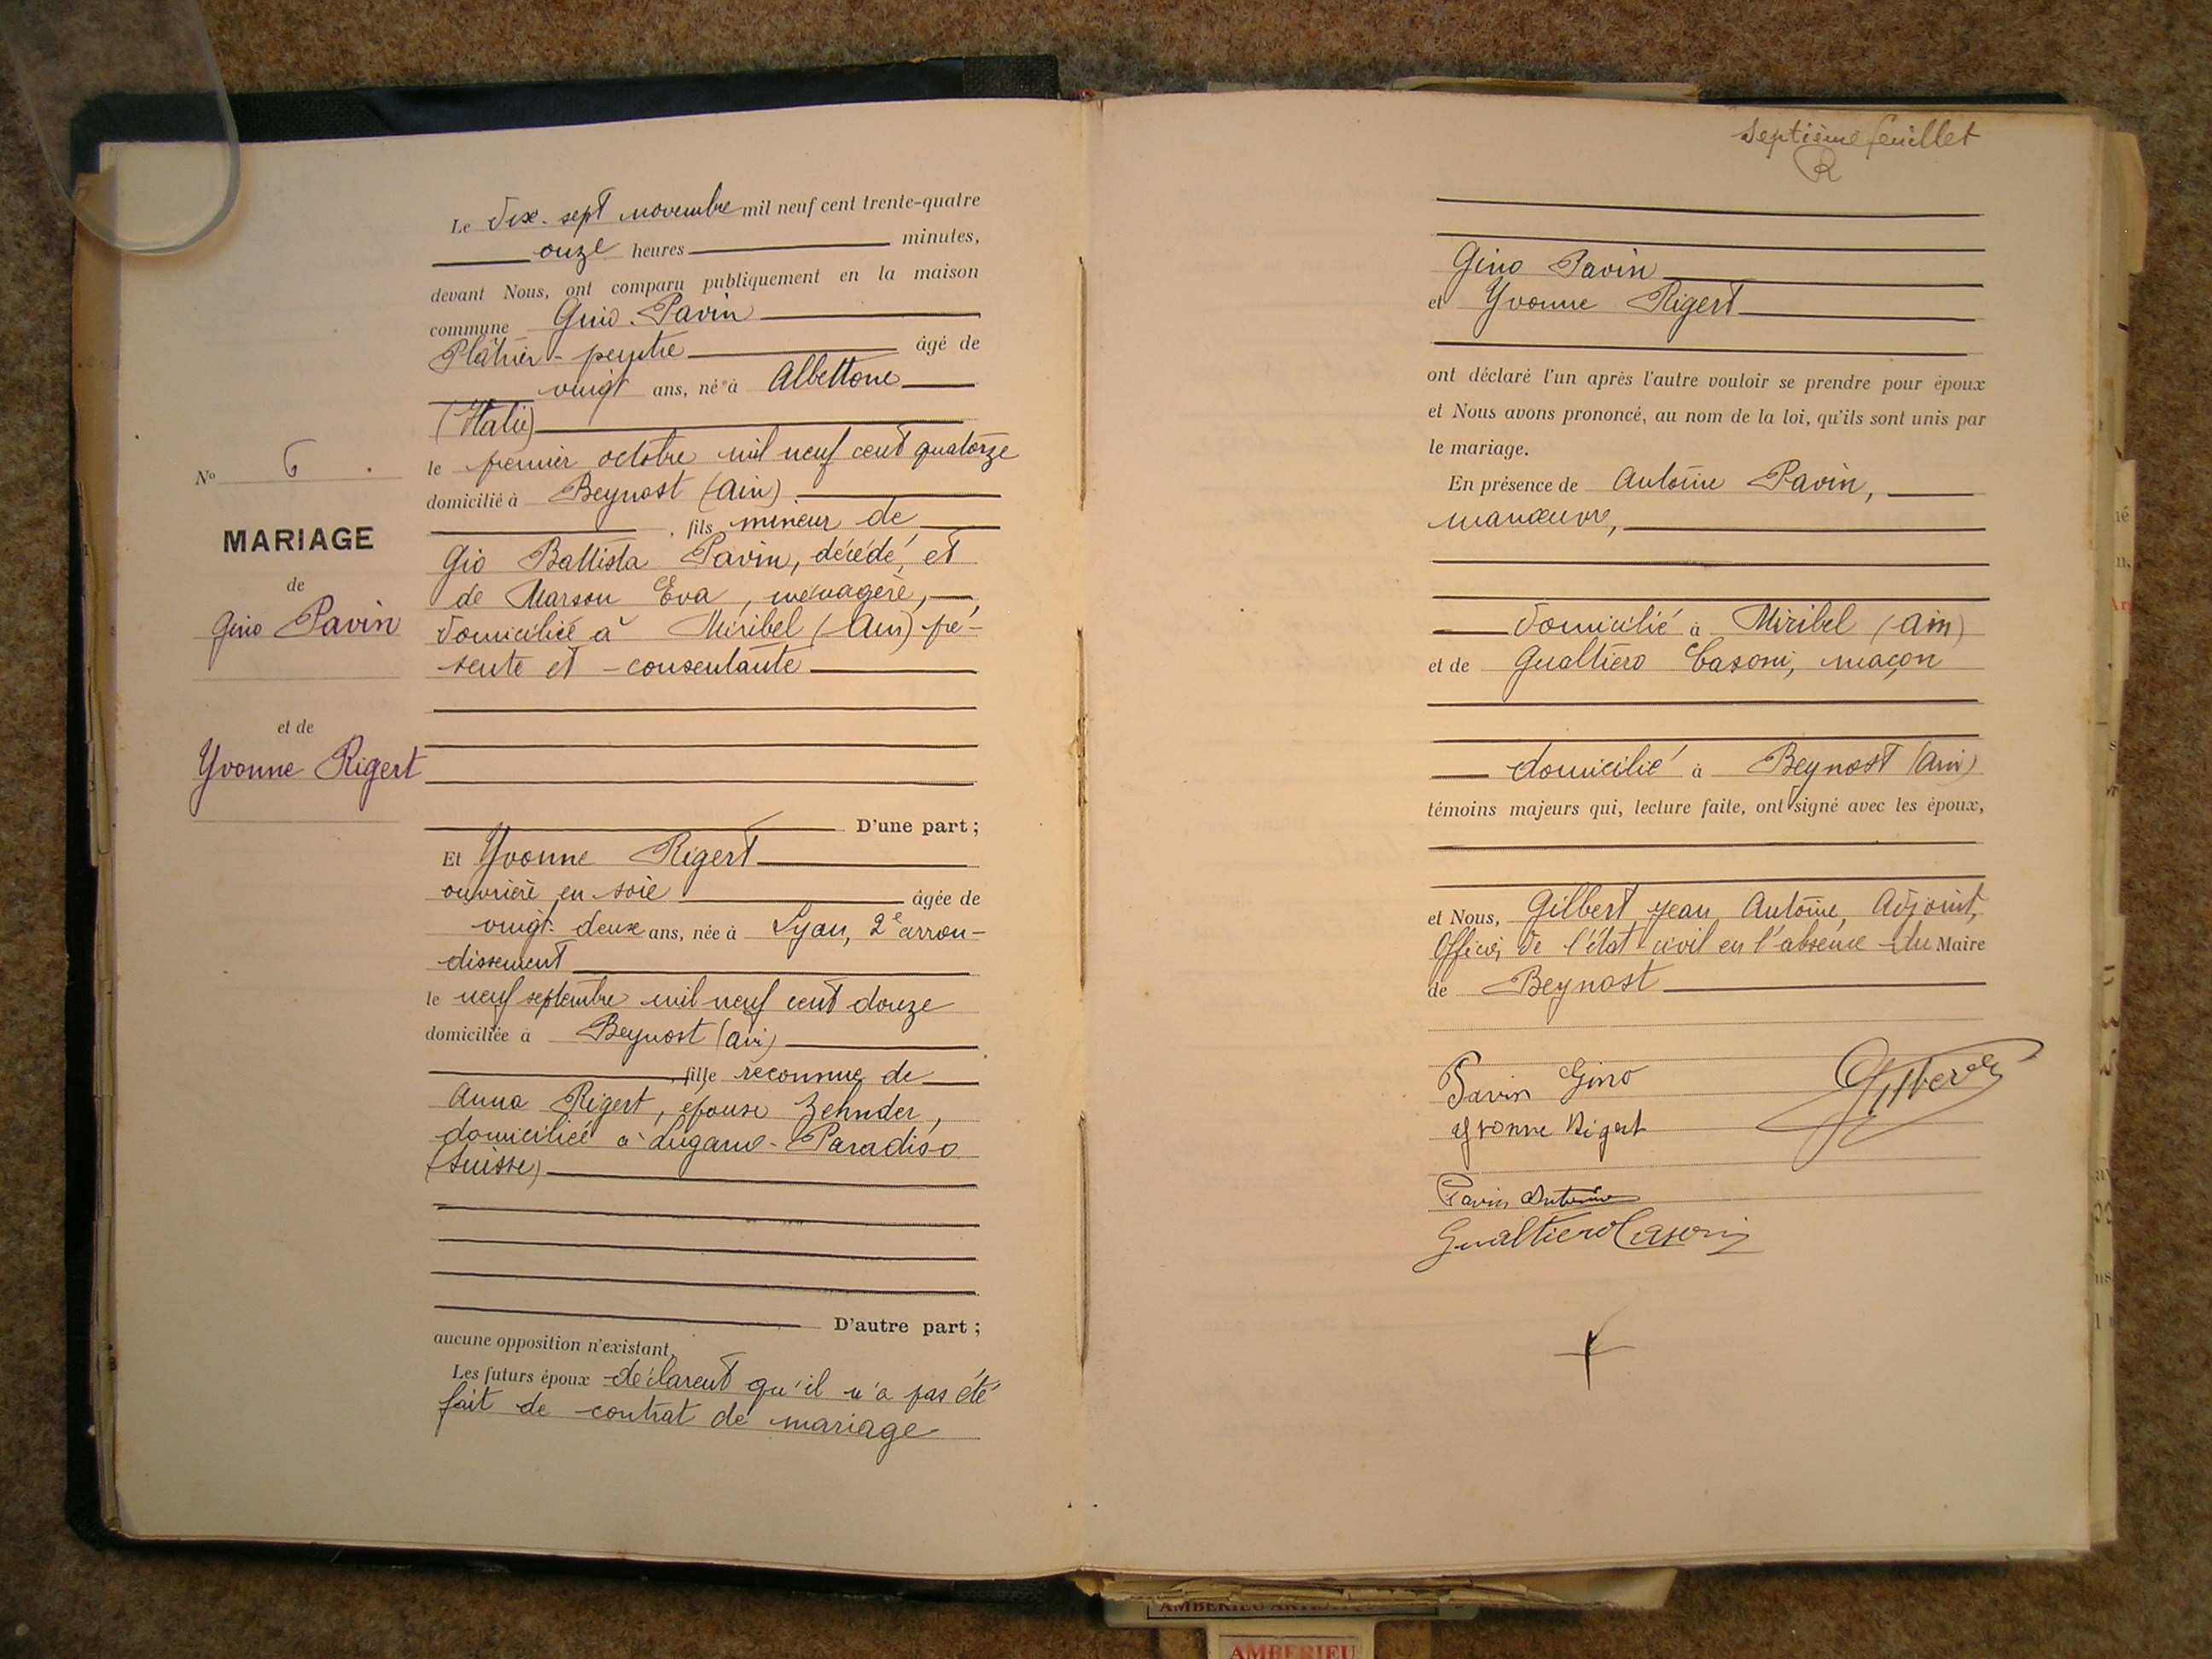 Le dix-sept novembre mil neuf cent trente-quatre
onze heures minutes,
devant Nous, ont comparu publiquement en la maison
commune Gino Pavin
Plâtrier-peintre âgé de
vingt ans, né à Albettone
(Italie)
le premier octobre mil neuf cent quatorze
domicilié à Beynost (Ain)
, fils mineur de
Gio Battista Pavin, décédé, et
de Marson Eva, ménagère,
domiciliée à Miribel (Ain) pré-
sente et consentante
D'une part ;
Et Yvonne Rigert
ouvrière en soie âgée de
vingt-deux ans, née à Lyon, 2e arron-
dissement
le neuf septembre mil neuf cent douze
domiciliée à Beynost (Ain)
, fille reconnue de
Anna Rigert, épouse Zehnder,
domiciliée à Lugano-Paradiso
(Suisse)
D'autre part ;
aucune opposition n'existant,
Les futurs époux déclarent qu'il n'a pas été
fait de contrat de mariage
No 6.
MARIAGE
de
Gino Pavin
et de
Yvonne Rigert
Septième feuillet
R
Gino Pavin
et Yvonne Rigert
ont déclaré l'un après l'autre vouloir se prendre pour époux
et Nous avons prononcé, au nom de la loi, qu'ils sont unis par
le mariage.
En présence de Antoine Pavin,
manœuvre,
domicilié à Miribel (Ain)
et de Gualtiero Casoni, maçon
domicilié à Beynost (Ain)
témoins majeurs qui, lecture faite, ont signé avec les époux,
et Nous, Gilbert Jean Antoine, Adjoint,
Officier de l'état civil en l'absence du Maire
de Beynost
Pavin Gino
Gilbert
Yvonne Rigert
Pavin Antoine
Gualtiero Casoni
AMBERIEU